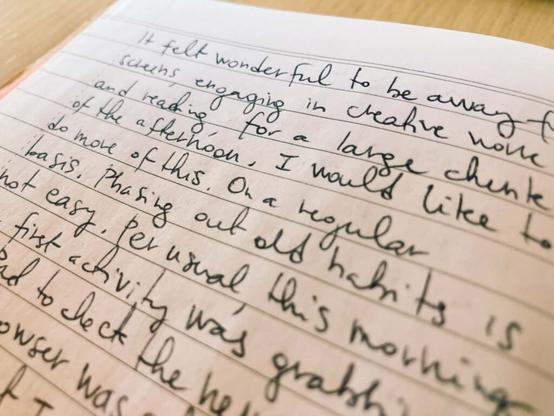 It felt wonderful to be away
screens, engaging in creative work
and reading, for a large chunk
of the afternoon. I would like to
do more of this. On a regular
basis. Phasing out old habits is
not easy. Per usual this morning
first activity was
to check the
was